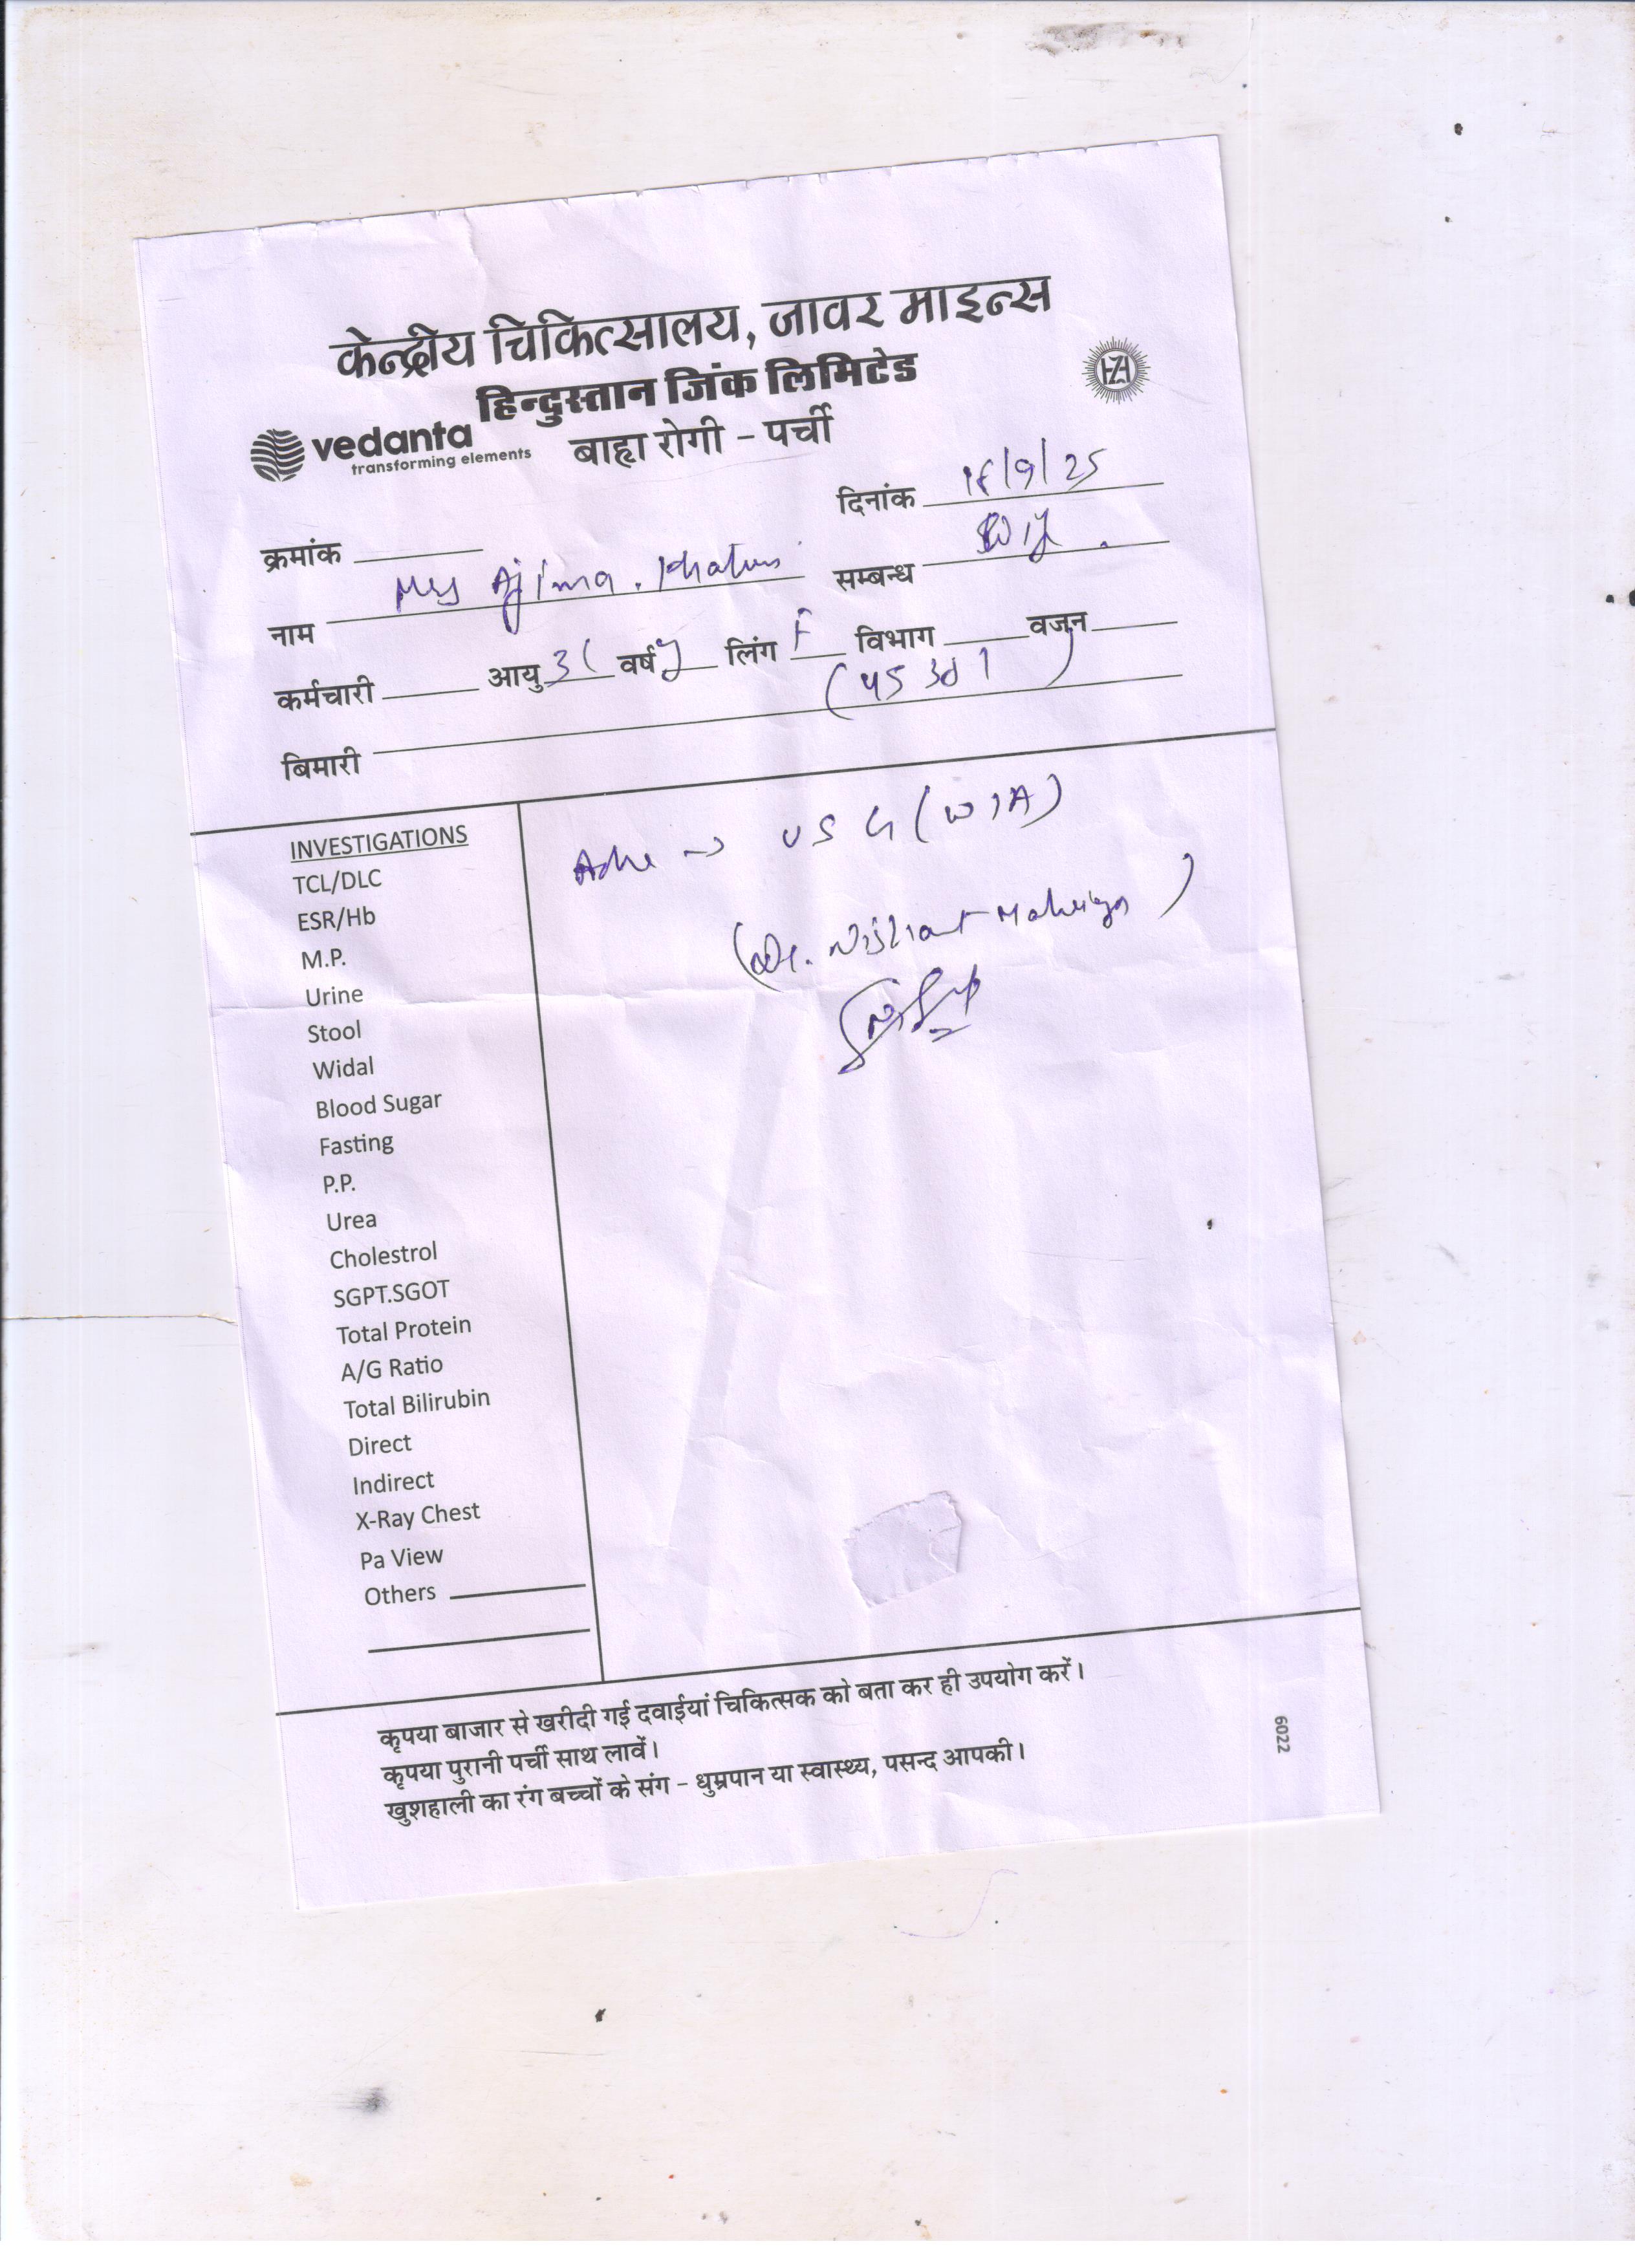 केन्द्रीय चिकित्सालय, जावर माइन्स
हिन्दुस्तान जिंक लिमिटेड
vedanta
transforming elements
बाह्य रोगी - पर्ची
दिनांक /9/25
क्रमांक
नाम Mrs Ajima. Khatun
सम्बन्ध
कर्मचारी आयु 3 वर्ष y लिंग F विभाग वजन
(45301)
बिमारी
INVESTIGATIONS
TCL/DLC
ESR/Hb
M.P.
Urine
Stool
Widal
Blood Sugar
Fasting
P.P.
Urea
Cholestrol
SGPT.SGOT
Total Protein
A/G Ratio
Total Bilirubin
Direct
Indirect
X-Ray Chest
Pa View
Others
→ USG (W/A)
(Dr. Nishant
कृपया बाजार से खरीदी गई दवाईयां चिकित्सक को बता कर ही उपयोग करें।
कृपया पुरानी पर्ची साथ लावें।
खुशहाली का रंग बच्चों के संग - धुम्रपान या स्वास्थ्य, पसन्द आपकी।
6022